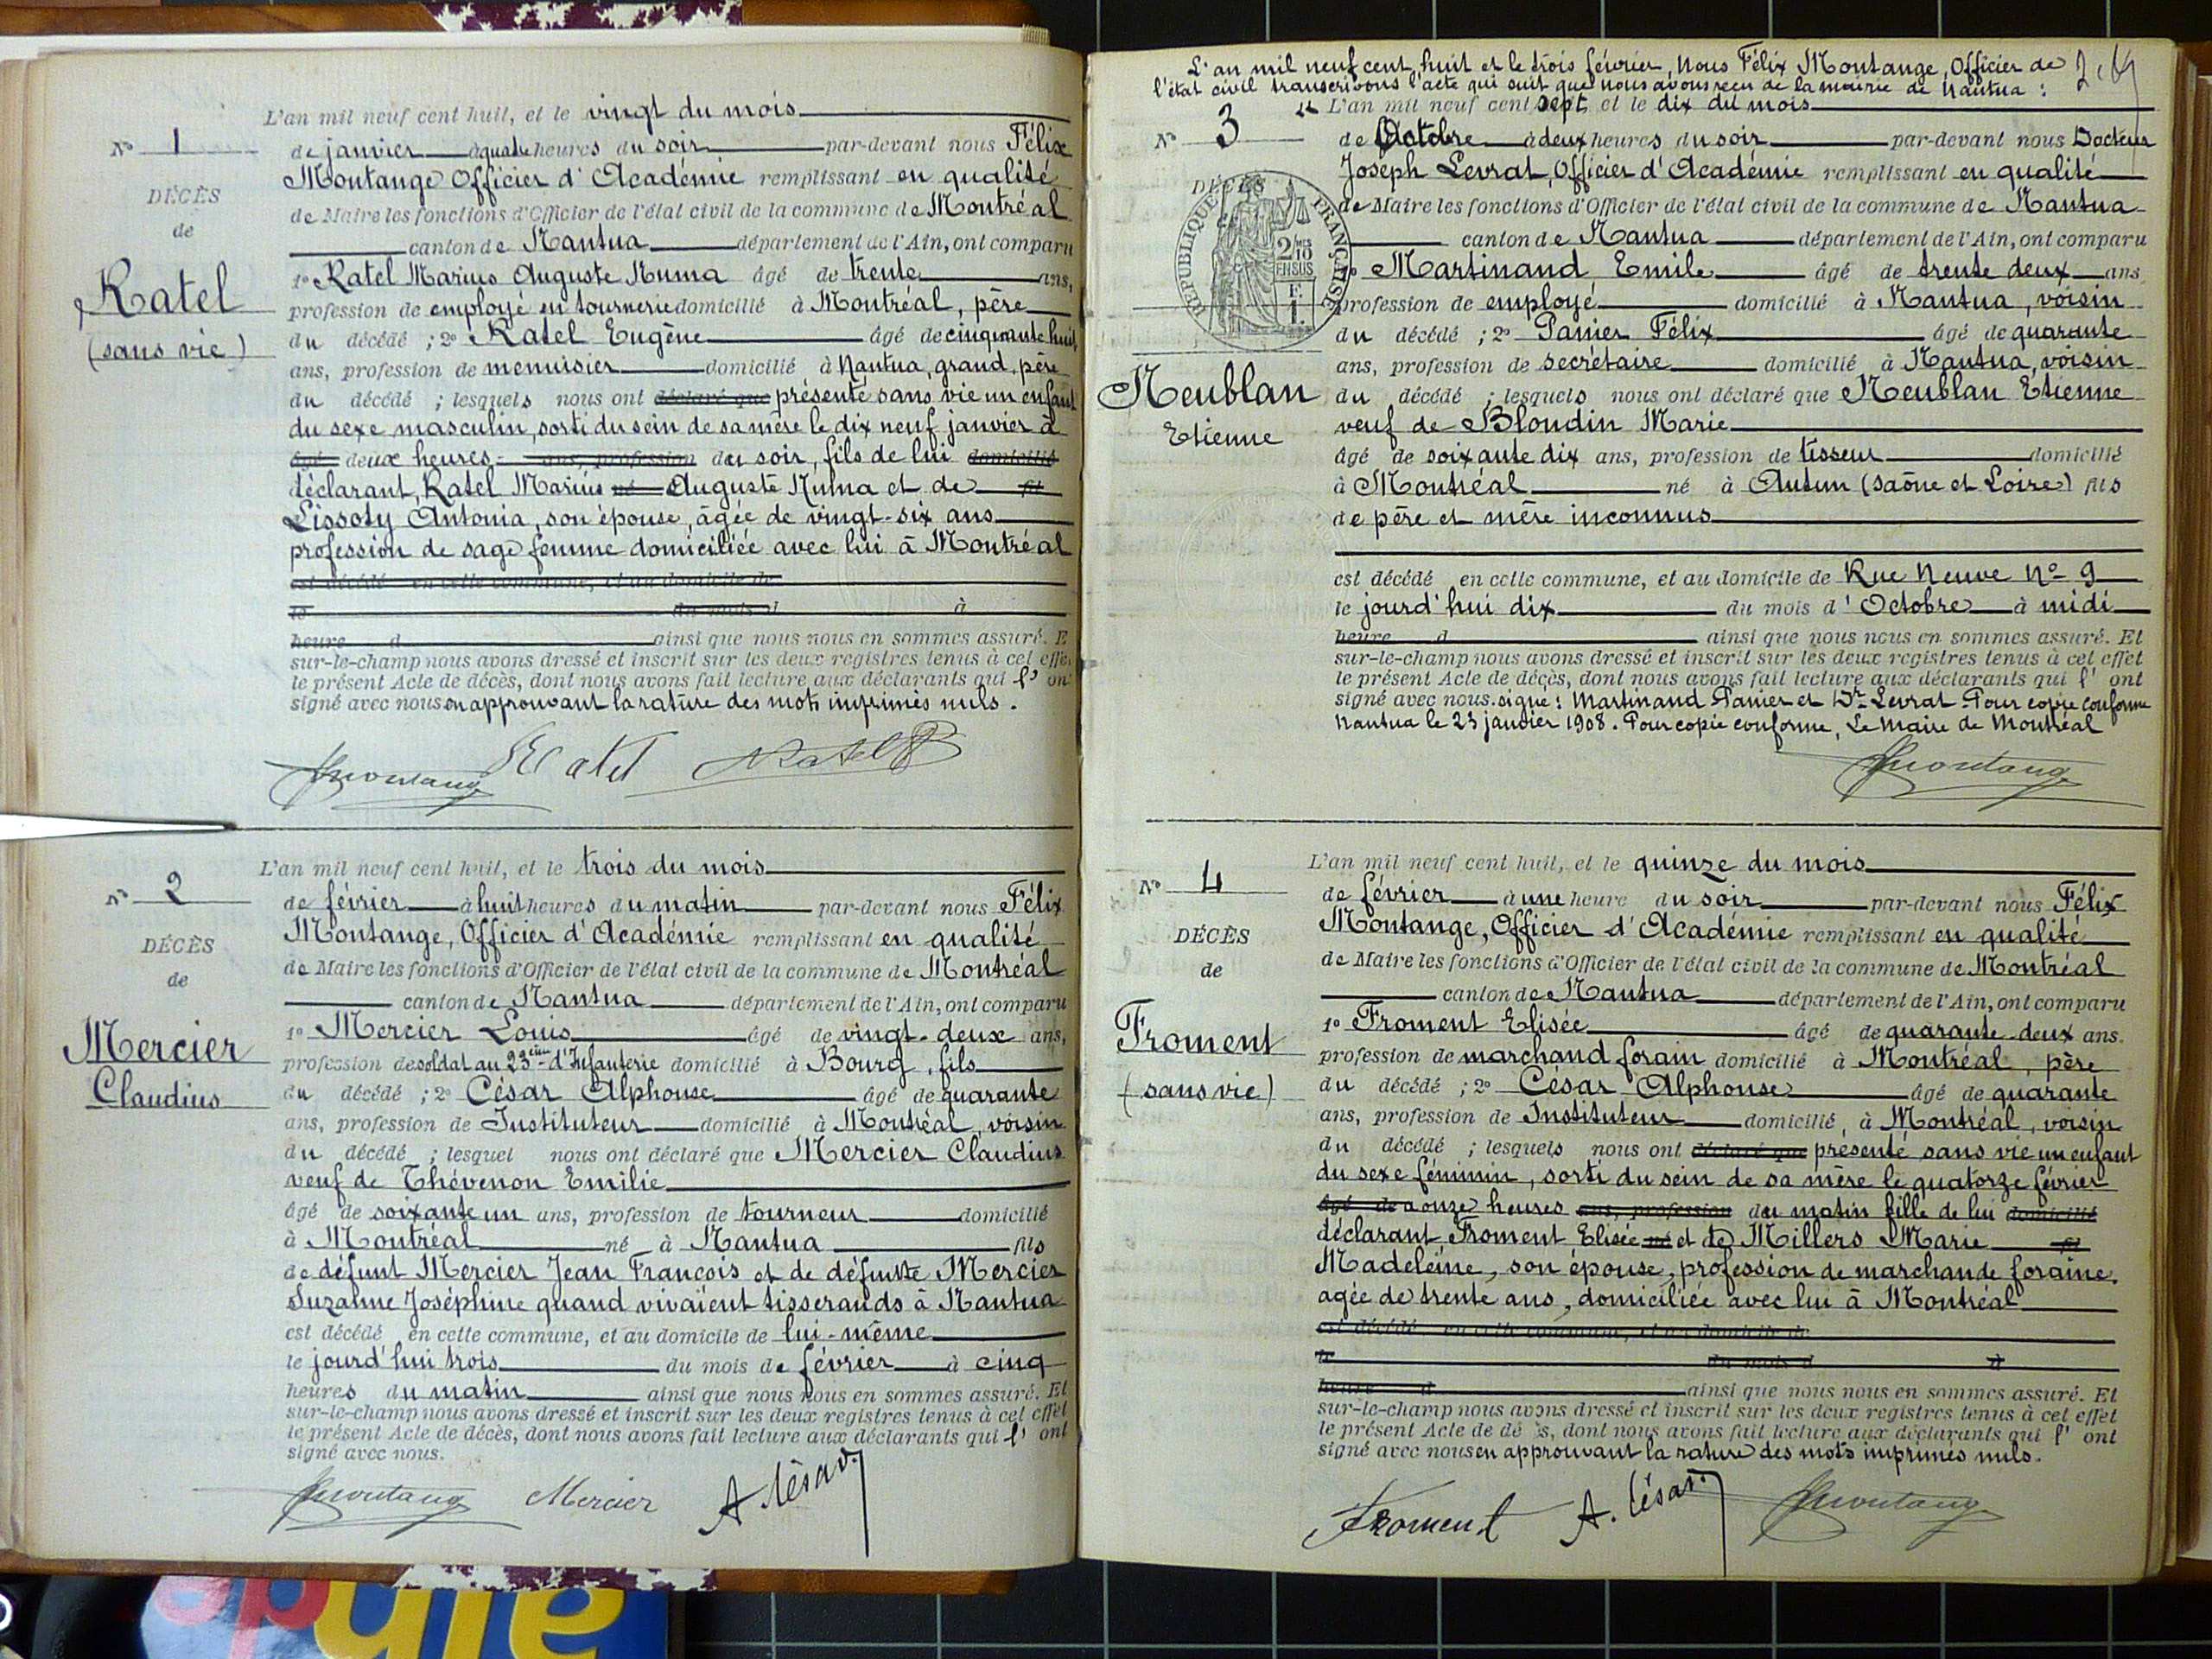 L'an mil neuf cent huit, et le vingt du mois
N° 1
de janvier à quatre heures du soir par-devant nous Félix
Montange Officier d'Académie remplissant en qualité
DÉCÈS
de Maire les fonctions d'Officier de l'état civil de la commune de Montréal
de
canton de Nantua département de l'Ain, ont comparu
Ratel
(sans vie)
1° Ratel Marius Auguste Numa âgé de trente ans,
profession de employé en tournerie domicilié à Montréal, père
du décédé ; 2° Ratel Eugène âgé de cinquante huit
ans, profession de menuisier domicilié à Nantua, grand-père
du décédé ; lesquels nous ont déclaré que présenté sans vie un enfant
du sexe masculin, sorti du sein de sa mère le dix neuf janvier à
âgé deux heures ans, profession du soir, fils de lui domicilié
déclarant, Ratel Marius né Auguste Numa et de fil
Lissoty Antonia, son épouse, âgée de vingt-six ans
profession de sage femme domiciliée avec lui à Montréal
est décédé en cette commune, et au domicile de
le du mois d à
heure d ainsi que nous nous en sommes assuré. E
sur-le-champ nous avons dressé et inscrit sur les deux registres tenus à cet effe
le présent Acte de décès, dont nous avons fait lecture aux déclarants qui l' on
signé avec nous en approuvant la rature des mots imprimés nuls.
FMontange Ratel Ratel
L'an mil neuf cent huit, et le trois du mois
N° 2
de février à huit heures du matin par-devant nous Félix
Montange, Officier d'Académie remplissant en qualité
DÉCÈS
de Maire les fonctions d'Officier de l'état civil de la commune de Montréal
de
canton de Nantua département de l'Ain, ont comparu
Mercier
Claudius
1° Mercier Louis âgé de vingt-deux ans,
profession de soldat au 23ème d'Infanterie domicilié à Bourg, fils
du décédé ; 2° César Alphonse âgé de quarante
ans, profession de Instituteur domicilié à Montréal, voisin
du décédé ; lesquel nous ont déclaré que Mercier Claudius
veuf de Thévenon Emilie
âgé de soixante un ans, profession de tourneur domicilié
à Montréal né à Nantua fils
de défunt Mercier Jean François et de défunte Mercier
Suzanne Joséphine quand vivaient tisserands à Nantua
est décédé en cette commune, et au domicile de lui-même
le jourd'hui trois du mois de février à cinq
heures du matin ainsi que nous nous en sommes assuré. Et
sur-le-champ nous avons dressé et inscrit sur les deux registres tenus à cet effet
le présent Acte de décès, dont nous avons fait lecture aux déclarants qui l' ont
signé avec nous.
FMontange Mercier A. César
L'an mil neuf cent huit et le trois février, Nous Félix Montange, Officier de
l'état civil transcrivons l'acte qui suit que nous avons reçu de la mairie de Nantua :
L'an mil neuf cent sept, et le dix du mois
N° 3
de Octobre à deux heures du soir par-devant nous Docteur
Joseph Levrat, Officier d'Académie remplissant en qualité
DÉCÈS
RÉPUBLIQUE FRANÇAISE
2/10
EN SUS
E.
1.
de Maire les fonctions d'Officier de l'état civil de la commune de Nantua
canton de Nantua département de l'Ain, ont comparu
1° Martinand Emile âgé de trente deux ans
profession de employé domicilié à Nantua, voisin
du décédé ; 2° Panier Félix âgé de quarante
ans, profession de secrétaire domicilié à Nantua, voisin
Neublan
Etienne
du décédé ; lesquels nous ont déclaré que Neublan Etienne
veuf de Blondin Marie
âgé de soixante dix ans, profession de tisseur domicilié
à Montréal né à Autun (Saône et Loire) fils
de père et mère inconnus
est décédé en cette commune, et au domicile de Rue Neuve N° 9
le jourd'hui dix du mois d'Octobre à midi
heure d ainsi que nous nous en sommes assuré. Et
sur-le-champ nous avons dressé et inscrit sur les deux registres tenus à cet effet
le présent Acte de décès, dont nous avons fait lecture aux déclarants qui l' ont
signé avec nous. signé : Martinand Panier et Dr Levrat Pour copie conforme
Nantua le 23 janvier 1908. Pour copie conforme, Le Maire de Montréal
FMontange
L'an mil neuf cent huit, et le quinze du mois
N° 4
de février à une heure du soir par-devant nous Félix
Montange, Officier d'Académie remplissant en qualité
DÉCÈS
de Maire les fonctions d'Officier de l'état civil de la commune de Montréal
de
canton de Nantua département de l'Ain, ont comparu
Froment
(sans vie)
1° Froment Elisée âgé de quarante-deux ans.
profession de marchand forain domicilié à Montréal, père
du décédé ; 2° César Alphonse âgé de quarante
ans, profession de Instituteur domicilié à Montréal, voisin
du décédé ; lesquels nous ont déclaré que présenté sans vie un enfant
du sexe féminin, sorti du sein de sa mère le quatorze février
âgé de à onze heures ans, profession du matin fille de lui domicilié
déclarant Froment Elisée né et de Millers Marie fil
Madeleine, son épouse, profession de marchande foraine,
agée de trente ans, domiciliée avec lui à Montréal
est décédé en cette commune, et au domicile de
le du mois d à
heure d ainsi que nous nous en sommes assuré. Et
sur-le-champ nous avons dressé et inscrit sur les deux registres tenus à cet effet
le présent Acte de dé ès, dont nous avons fait lecture aux déclarants qui l' ont
signé avec nous en approuvant la rature des mots imprimés nuls.
Froment A. César FMontange